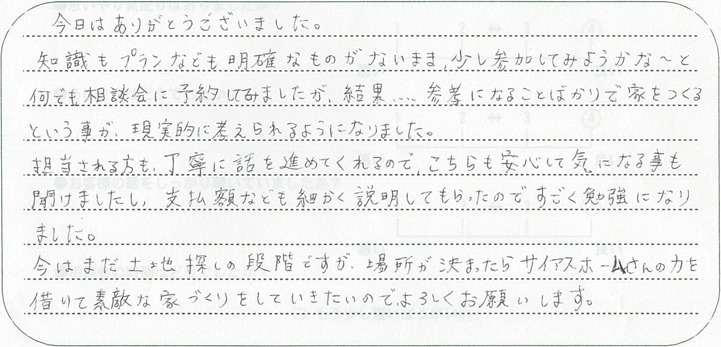 今日はありがとうございました。
知識もプランなども明確なものがないまま、少し参加してみようかな～と
何でも相談会に予約してみましたが、結果.... 参考になることばかりで家をつくる
という事が、現実的に考えられるようになりました。
担当される方も、丁寧に話を進めてくれるので、こちらも安心して気になる事も
聞けましたし、支払額なども細かく説明してもらったのですごく勉強になり
ました。
今はまだ土地探しの段階ですが、場所が決まったらサイアスホームさんの力を
借りて素敵な家づくりをしていきたいのでよろしくお願いします。